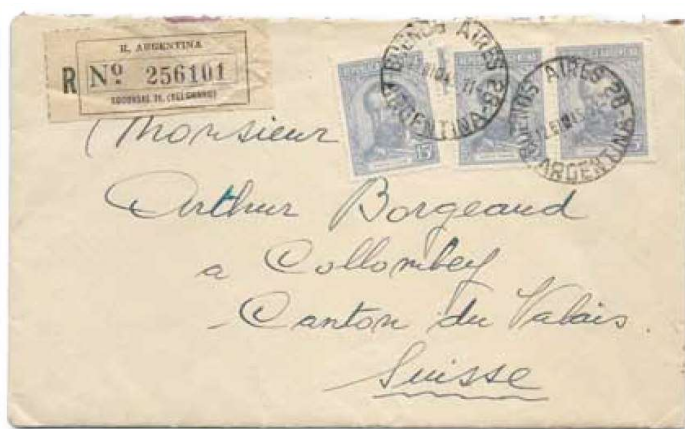 R. ARGENTINA
R Nº 256101
SUCURSAL 28, (BELGRANO)
BUENOS AIRES 28-A
ARGENTINA
BUENOS AIRES 28-A
ARGENTINA
15
Monsieur
Arthur Borgeaud
a Collombey
Canton du Valais.
Suisse